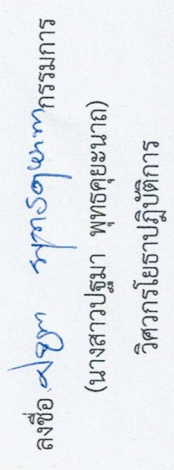 ลงชื่อ ปฐมา พุทธคุยะนาถ กรรมการ
(นางสาวปฐมา พุทธคุยะนาถ)
วิศวกรโยธาปฏิบัติการ